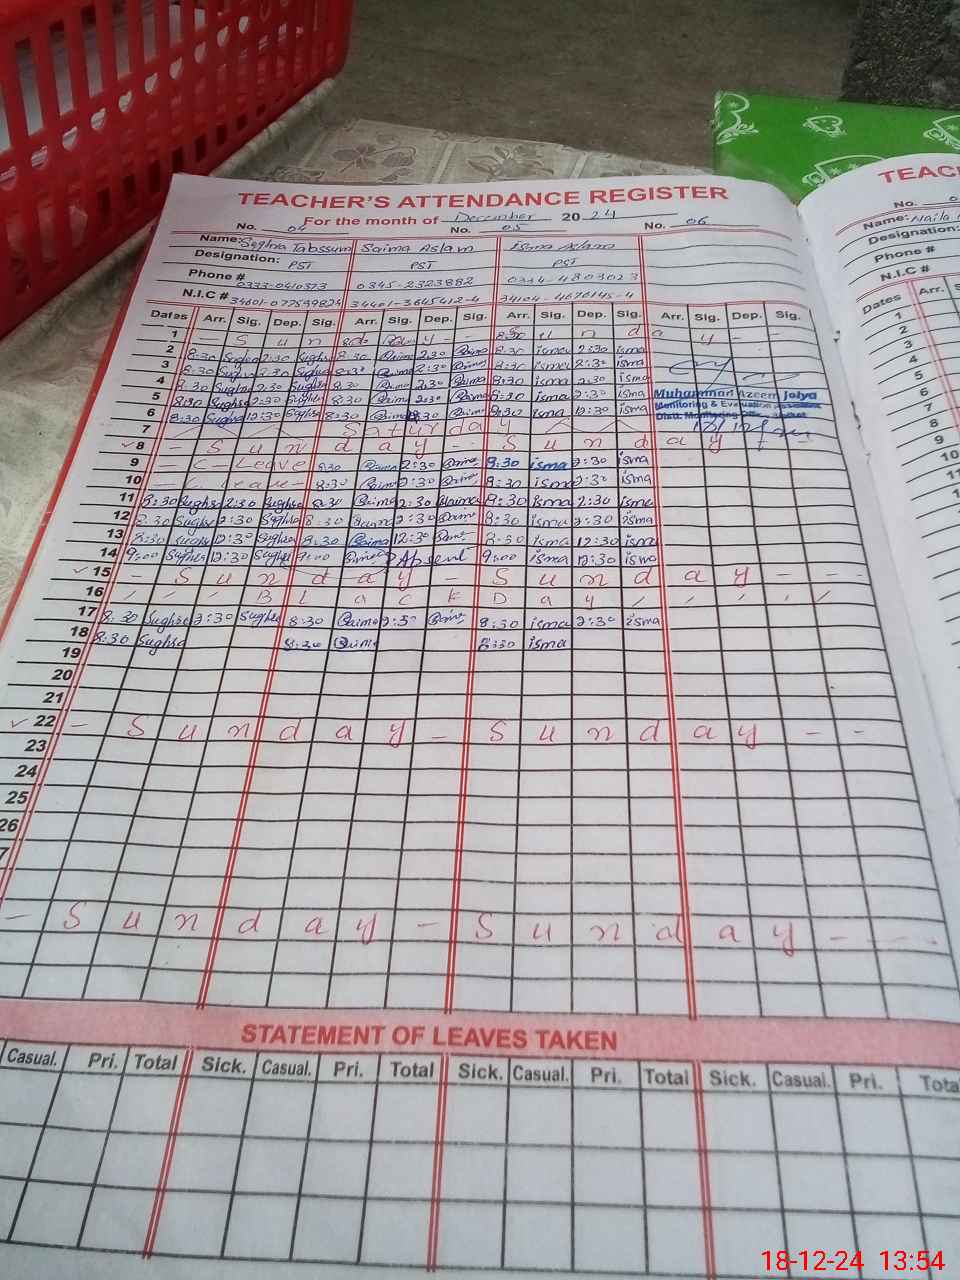 TEACHER'S ATTENDANCE REGISTER
For the month of December 2024
No. 04 No. 05 No. 06
Name: Sughra Tabssum Saima Aslam isma Aslam
Designation: PST PST PST
Phone #
N.I.C #
Dates Arr. Sig. Dep. Sig. Arr. Sig. Dep. Sig. Arr. Sig. Dep. Sig. Arr. Sig. Dep. Sig.
1 - S u n d a y -
2 8:30 Sughra 2:30 Sughra 8:30 Saima 2:30 Saima 8:30 isma 2:30 isma
3 8:30 Sughra 2:30 Sughra 8:30 Saima 2:30 Saima 8:30 isma 2:30 isma
4 8:30 Sughra 2:30 Sughra 8:30 Saima 2:30 Saima 8:30 isma 2:30 isma
5 8:30 Sughra 2:30 Sughra 8:30 Saima 2:30 Saima 8:30 isma 2:30 isma Muhammad Azeem Joiya
Monitoring & Evaluation
6 8:30 Sughra 12:30 Sughra 8:30 Saima 12:30 Saima 8:30 isma 12:30 isma
7 Saturday
✓8 - S u n d a y - - S u n d a y -
9 - C - Leave 8:30 Saima 2:30 Saima 8:30 isma 2:30 isma
10 - C Leave - 8:30 Saima 2:30 Saima 8:30 isma 2:30 isma
11 8:30 Sughra 2:30 Sughra 8:30 Saima 2:30 Saima 8:30 isma 2:30 isma
12 8:30 Sughra 2:30 Sughra 8:30 Saima 2:30 Saima 8:30 isma 2:30 isma
13 8:30 Sughra 12:30 Sughra 8:30 Saima 12:30 Saima 8:30 isma 12:30 isma
14 9:00 Sughra 12:30 Sughra 9:00 Saima Absent 9:00 isma 12:30 isma
✓15 - S u n d a y - S u n d a y - - -
16 B L a c k D a y
17 8:30 Sughra 2:30 Sughra 8:30 Saima 2:30 Saima 8:30 isma 2:30 isma
18 8:30 Sughra 8:30 Saima 8:30 isma
19
20
21
✓22 - S u n d a y - S u n d a y - -
23
24
25
26
7
- S u n d a y - S u n d a y - - -
STATEMENT OF LEAVES TAKEN
Casual. Pri. Total Sick. Casual. Pri. Total Sick. Casual. Pri. Total Sick. Casual. Pri. Tota
TEAC
No.
Name: Naila
Designation:
Phone #
N.I.C #
Dates Arr. S
1
2
3
4
5
6
7
8
9
10
11
12
13
14
15
16
18-12-24 13:54